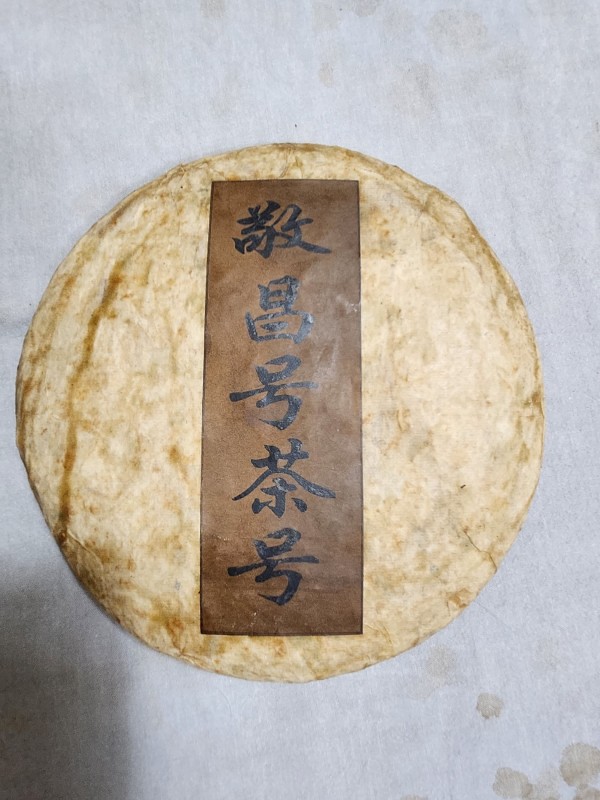 敬昌号茶号